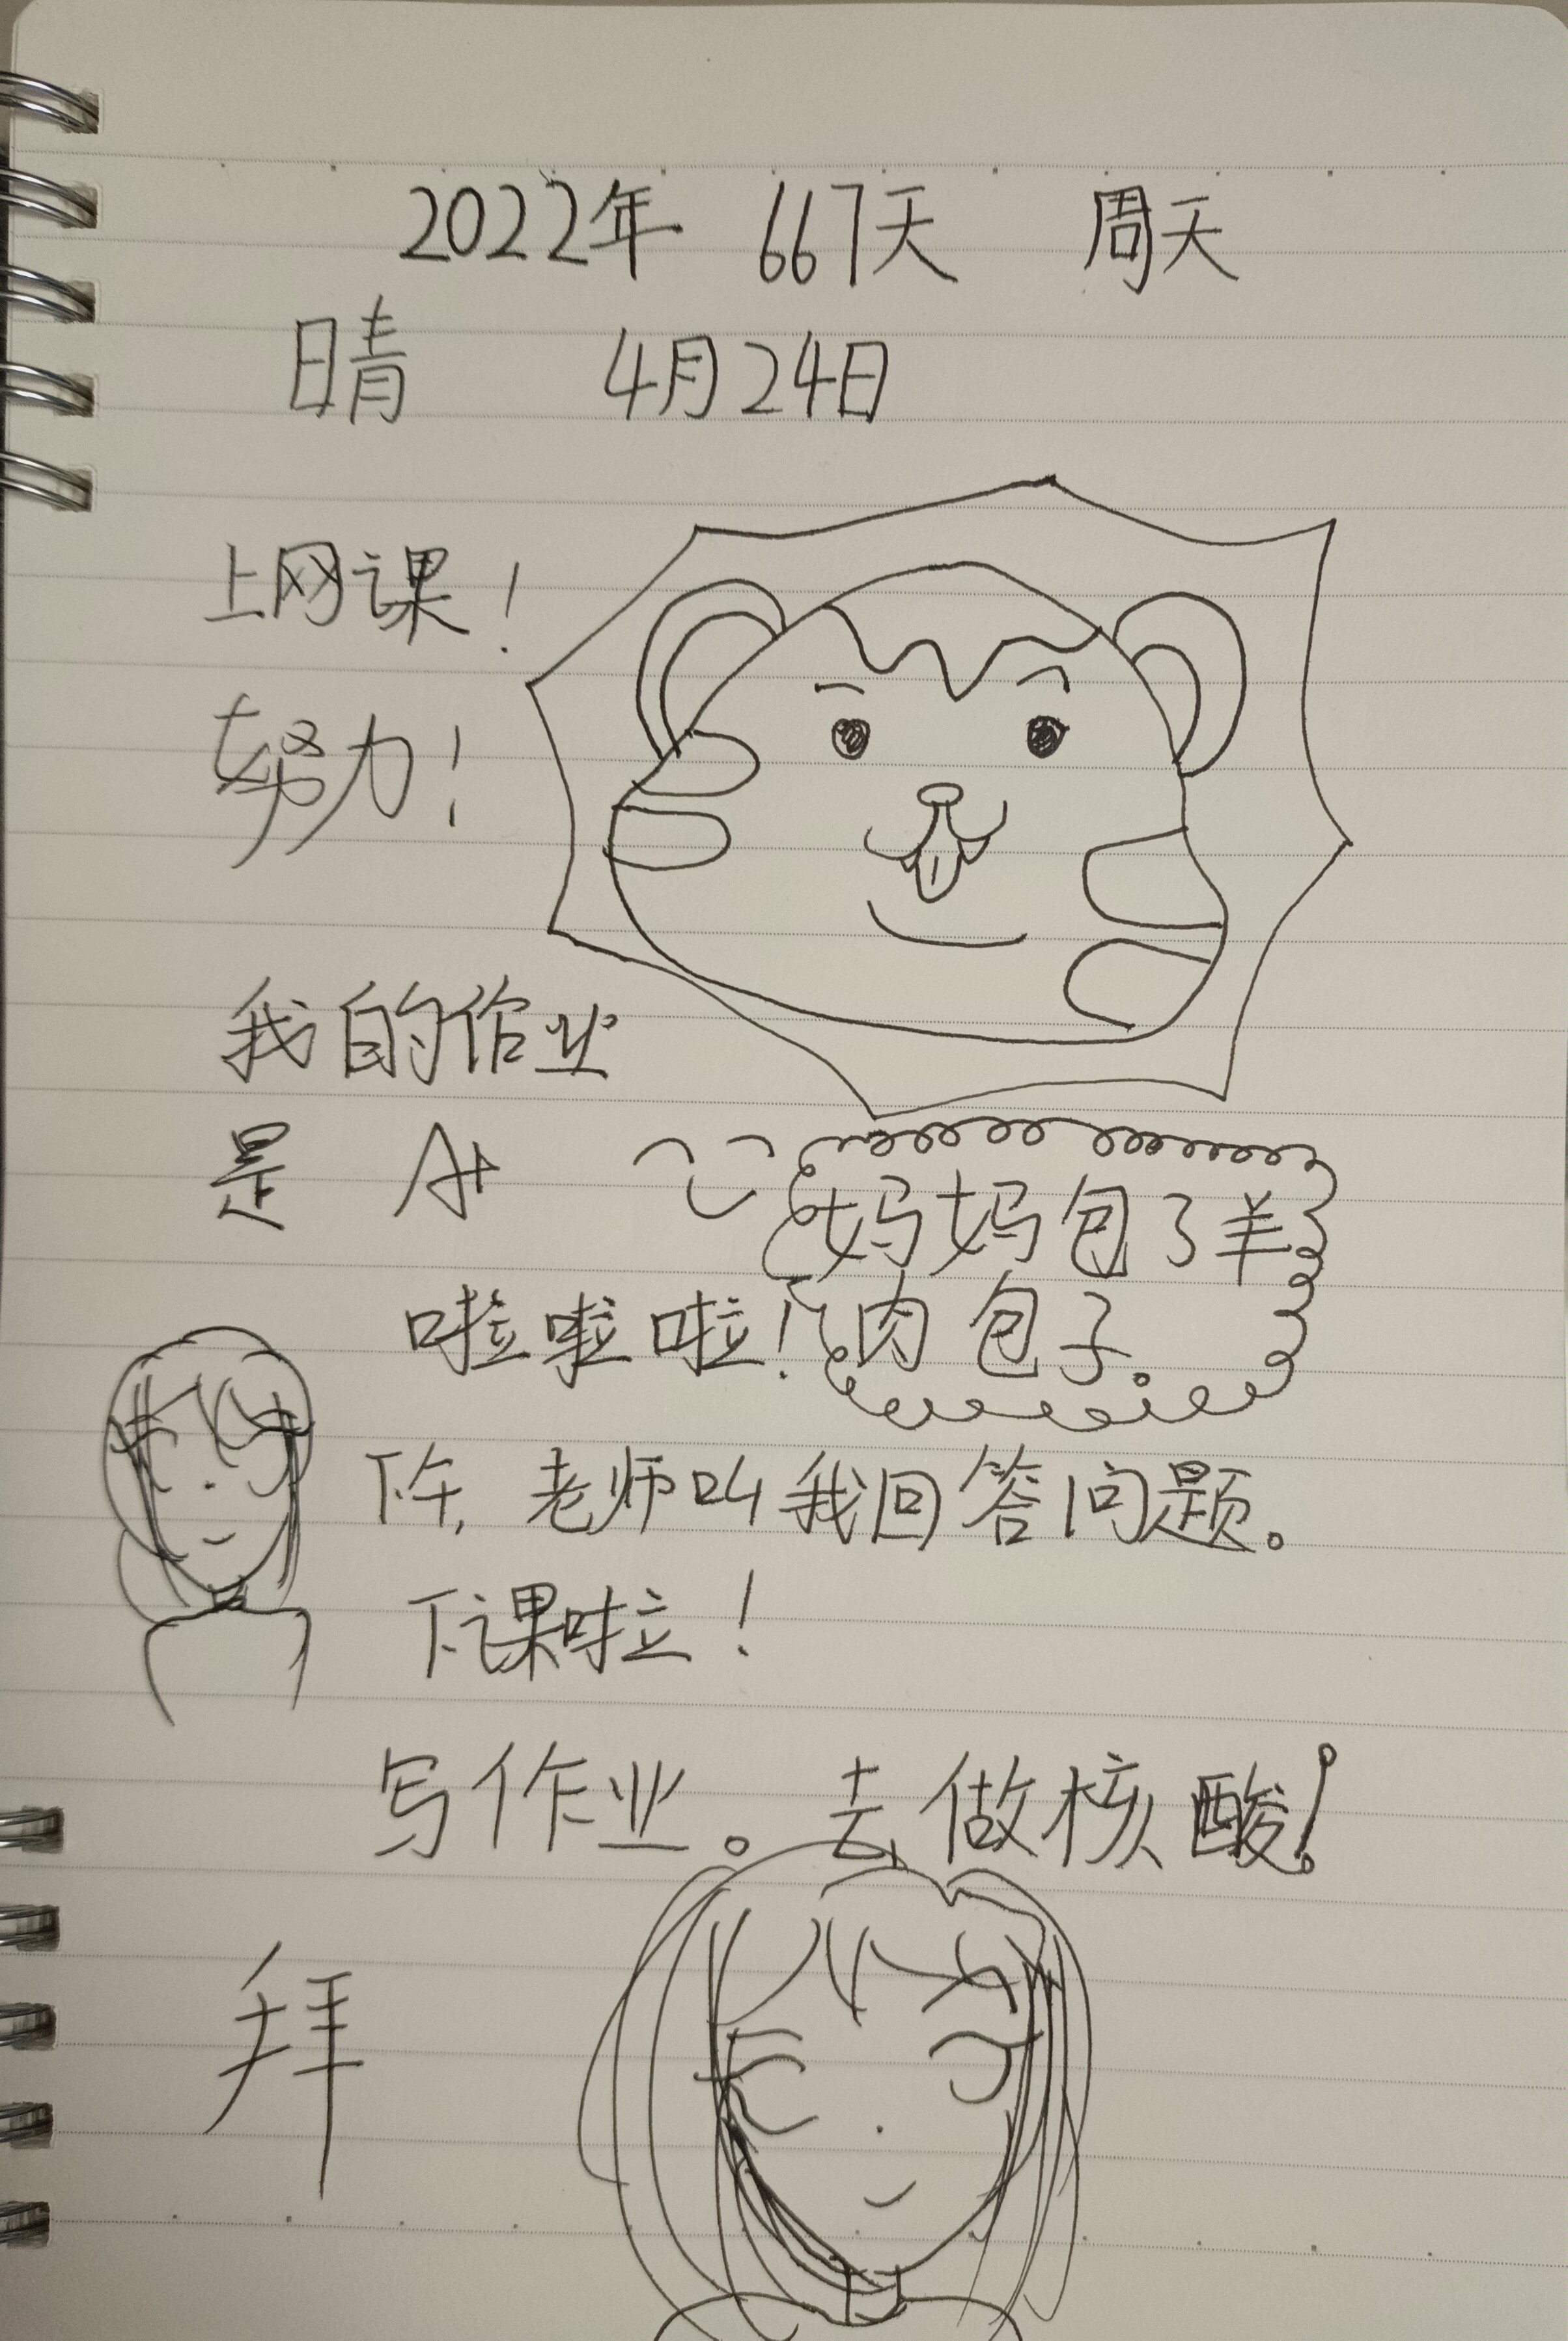 2022年 667天 周天
晴 4月24日
上网课！
努力！
我的作业
是 A+
妈妈包了羊
肉包子。
啦啦啦！
下午，老师叫我回答问题。
下课啦！
写作业。去做核酸！
拜